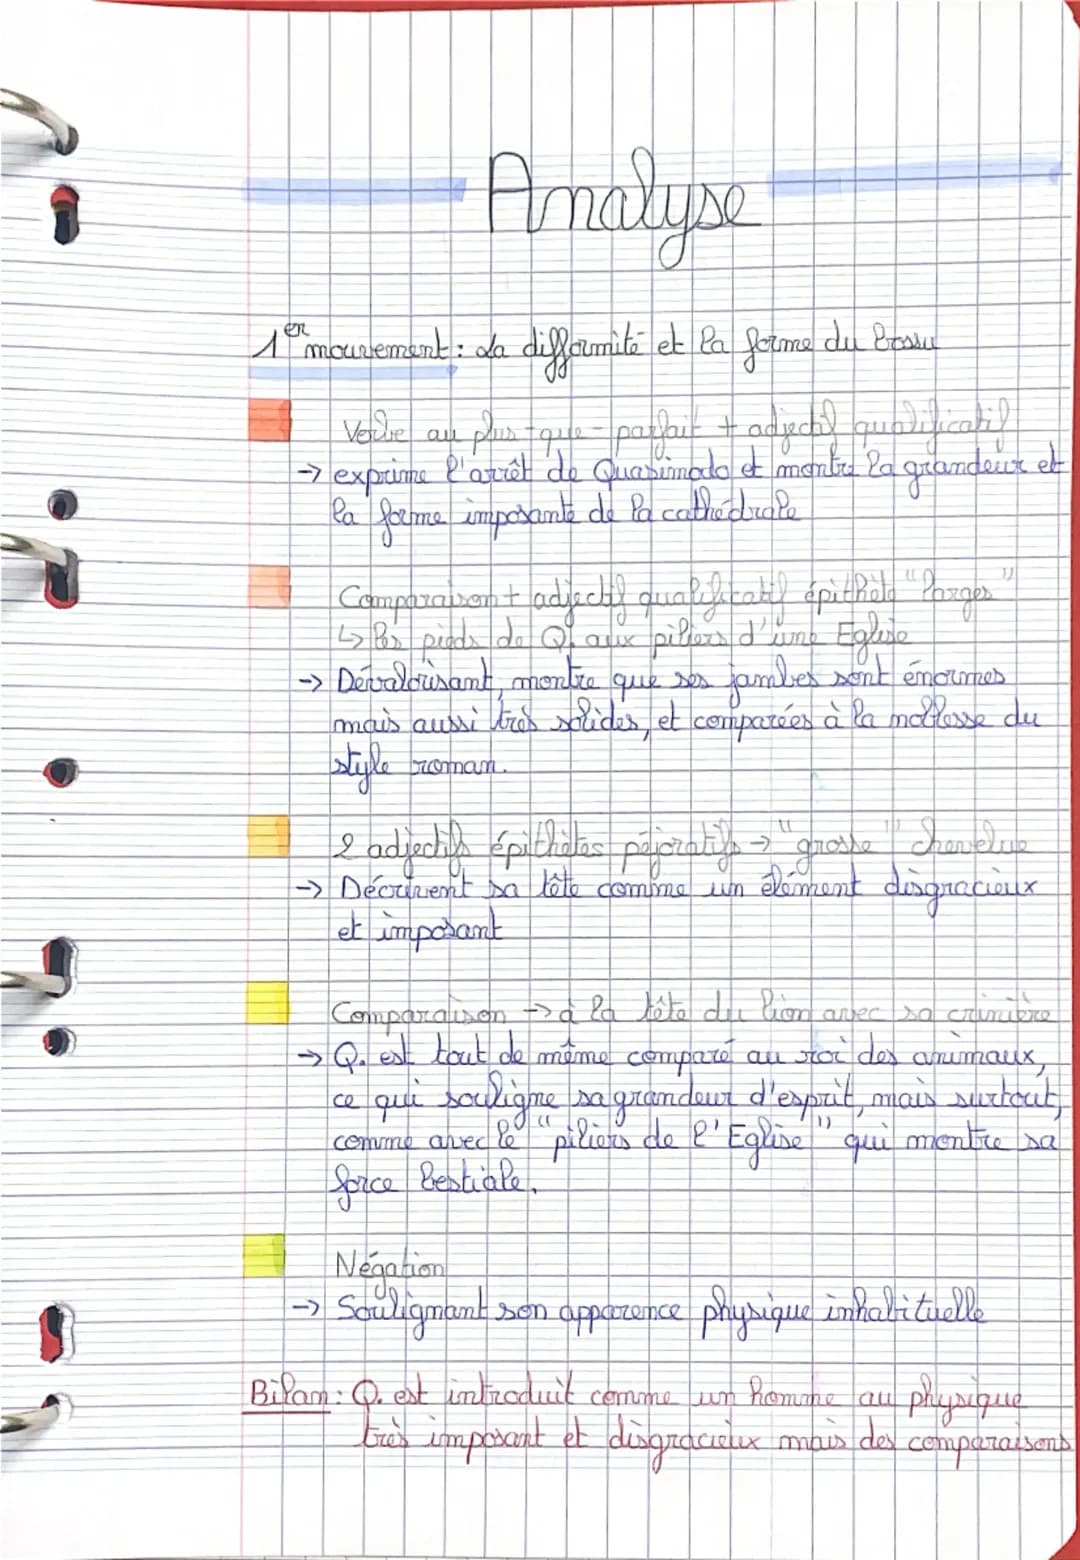 Analyse
1er mouvement : La difformité et la forme du bossu
Verbe au plus-que-parfait + adjectif qualificatif
→ exprime l'arrêt de Quasimodo et montre la grandeur et
la forme imposante de la cathédrale
Comparaison + adjectif qualificatif épithète "larges"
↳ les pieds de Q. aux piliers d'une Eglise
→ Dévalorisant, montre que ses jambes sont énormes
mais aussi très solides, et comparées à la mollesse du
style roman.
2 adjectifs épithètes péjoratifs → "grosse" chevelue
→ Décrivent sa tête comme un élément disgracieux
et imposant
Comparaison → à la tête du lion avec sa crinière
→ Q. est tout de même comparé au roi des animaux,
ce qui souligne sa grandeur d'esprit, mais surtout,
comme avec le "piliers de l'Eglise" qui montre sa
force bestiale.
Négation
→ Soulignant son apparence physique inhabituelle
Bilan : Q. est introduit comme un homme au physique
très imposant et disgracieux mais des comparaisons